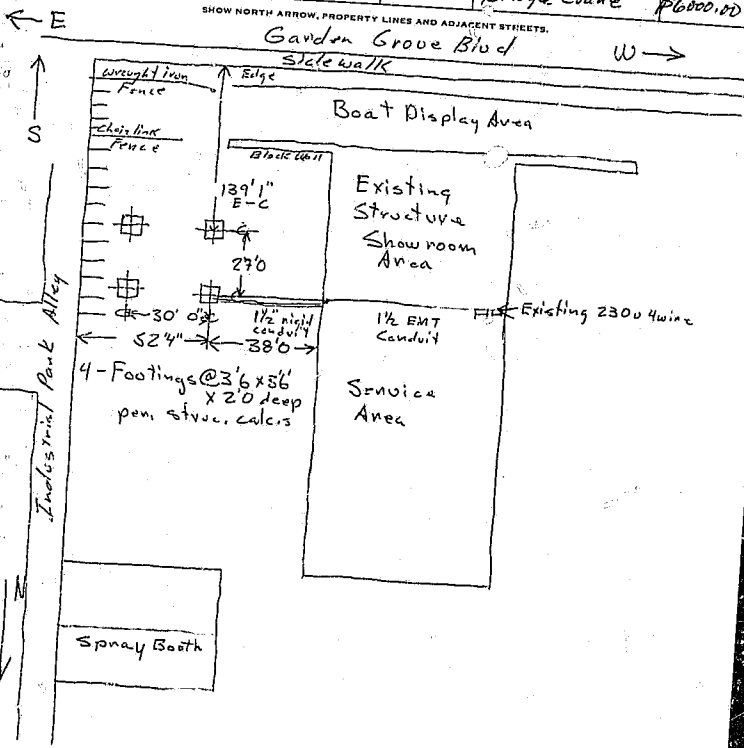 Crane $6000.00
SHOW NORTH ARROW, PROPERTY LINES AND ADJACENT STREETS.
E
Garden Grove Blvd
W
Sidewalk
Wrought iron
Fence
Edge
Boat Display Area
S
Chain link
Fence
Block Wall
139'1"
E-C
Existing
Structure
Showroom
Area
27'0
30' 0"
1½" rigid
conduit
1½ EMT
Conduit
Existing 230v 4wire
52'4"
38'0
4-Footings @ 3'6 x 5'6'
x 2'0 deep
per. struc. calc.s
Service
Area
Industrial Park Alley
N
Spray Booth